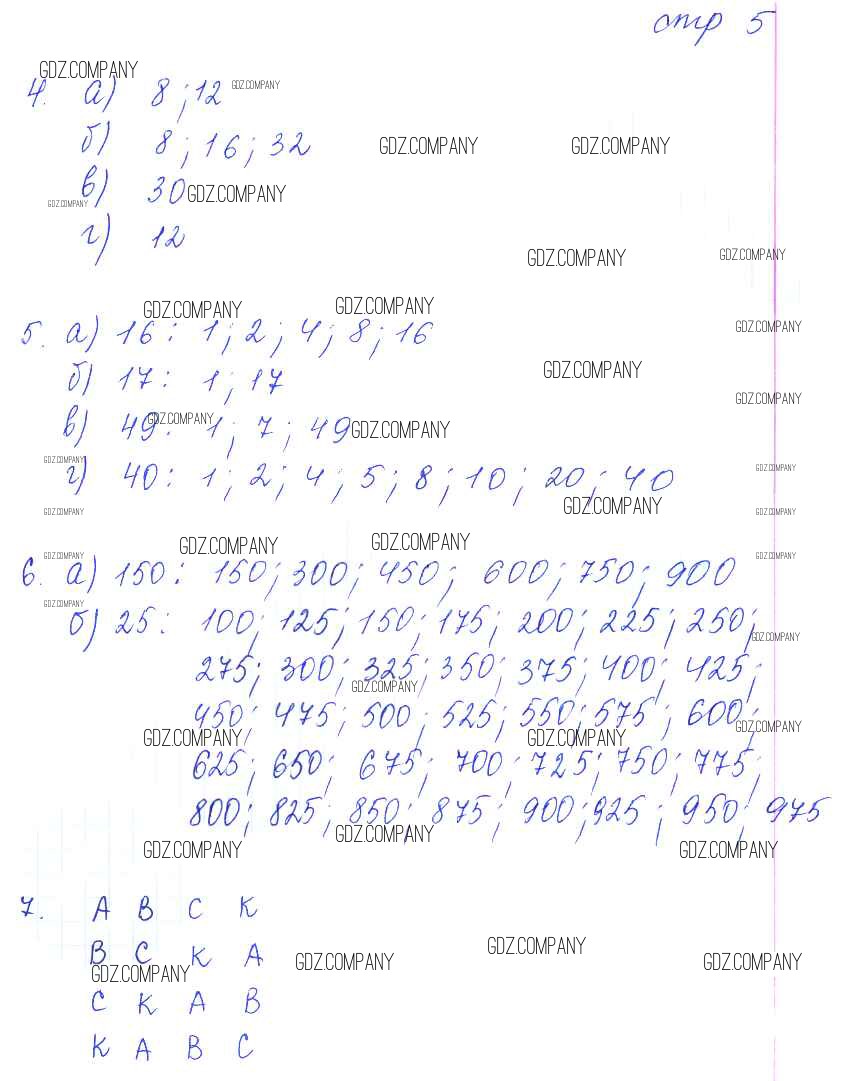 стр 5
GDZ.COMPANY
4. а) 8 ; 12 GDZ.COMPANY
б) 8 ; 16 ; 32 GDZ.COMPANY GDZ.COMPANY
в) 30 GDZ.COMPANY
GDZ.COMPANY
г) 12
GDZ.COMPANY GDZ.COMPANY
GDZ.COMPANY GDZ.COMPANY
5. а) 16 : 1 ; 2 ; 4 ; 8 ; 16 GDZ.COMPANY
б) 17 : 1 ; 17 GDZ.COMPANY
GDZ.COMPANY
в) 49 : 1 ; 7 ; 49 GDZ.COMPANY GDZ.COMPANY
GDZ.COMPANY GDZ.COMPANY
г) 40 : 1 ; 2 ; 4 ; 5 ; 8 ; 10 ; 20 ; 40
GDZ.COMPANY GDZ.COMPANY GDZ.COMPANY
GDZ.COMPANY GDZ.COMPANY GDZ.COMPANY GDZ.COMPANY
6. а) 150 : 150 ; 300 ; 450 ; 600 ; 750 ; 900
GDZ.COMPANY
б) 25 : 100 ; 125 ; 150 ; 175 ; 200 ; 225 ; 250 ;
GDZ.COMPANY
275 ; 300 ; 325 ; 350 ; 375 ; 400 ; 425 ;
GDZ.COMPANY
450 ; 475 ; 500 ; 525 ; 550 ; 575 ; 600 ;
GDZ.COMPANY GDZ.COMPANY GDZ.COMPANY
625 ; 650 ; 675 ; 700 ; 725 ; 750 ; 775 ;
800 ; 825 ; 850 ; 875 ; 900 ; 925 ; 950 ; 975
GDZ.COMPANY GDZ.COMPANY GDZ.COMPANY
7. А В С К
В С К А
GDZ.COMPANY GDZ.COMPANY GDZ.COMPANY GDZ.COMPANY
С К А В
К А В С